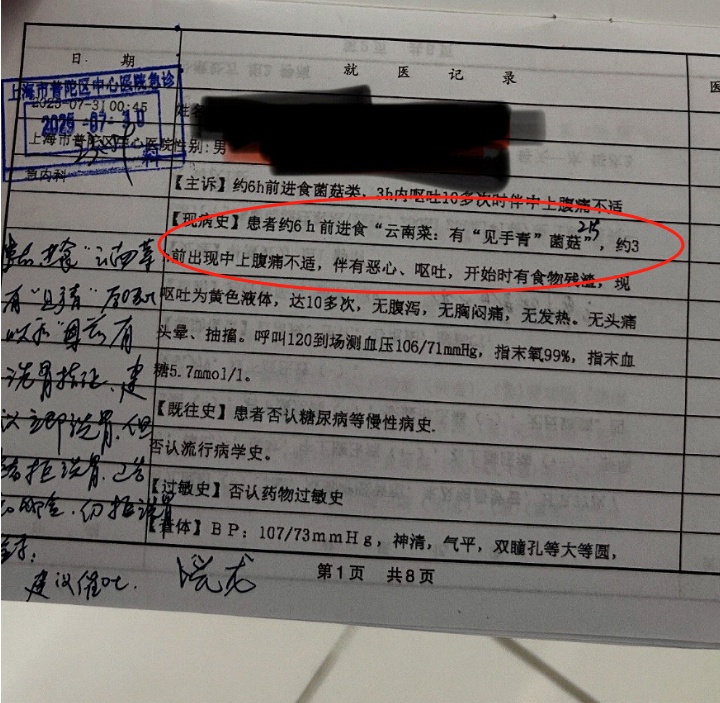 日 期
就 医 记 录
医
上海市普陀区中心医院急诊
2025-07-31 00:45
2025-07-30
上海市普陀区中心医院
性别:男
急内科
【主诉】约6h前进食菌菇类，3h内呕吐10多次时伴中上腹痛不适
【现病史】患者约6h前进食“云南菜：有“见手青”菌菇”，约3
前出现中上腹痛不适，伴有恶心、呕吐，开始时有食物残渣，现
呕吐为黄色液体，达10多次，无腹泻，无胸闷痛，无发热。无头痛
头晕、抽搐。呼叫120到场测血压106/71mmHg，指末氧99%，指末血
糖5.7mmol/l。
【既往史】患者否认糖尿病等慢性病史.
否认流行病学史。
【过敏史】否认药物过敏史
【查体】BP：107/73mmHg，神清，气平，双瞳孔等大等圆，
第1页 共8页
进食“云南菜
有“见手青”
有
洗胃指征，建
议立即洗胃，但
拒洗胃，已告
仍拒洗胃
签字：
建议催吐．